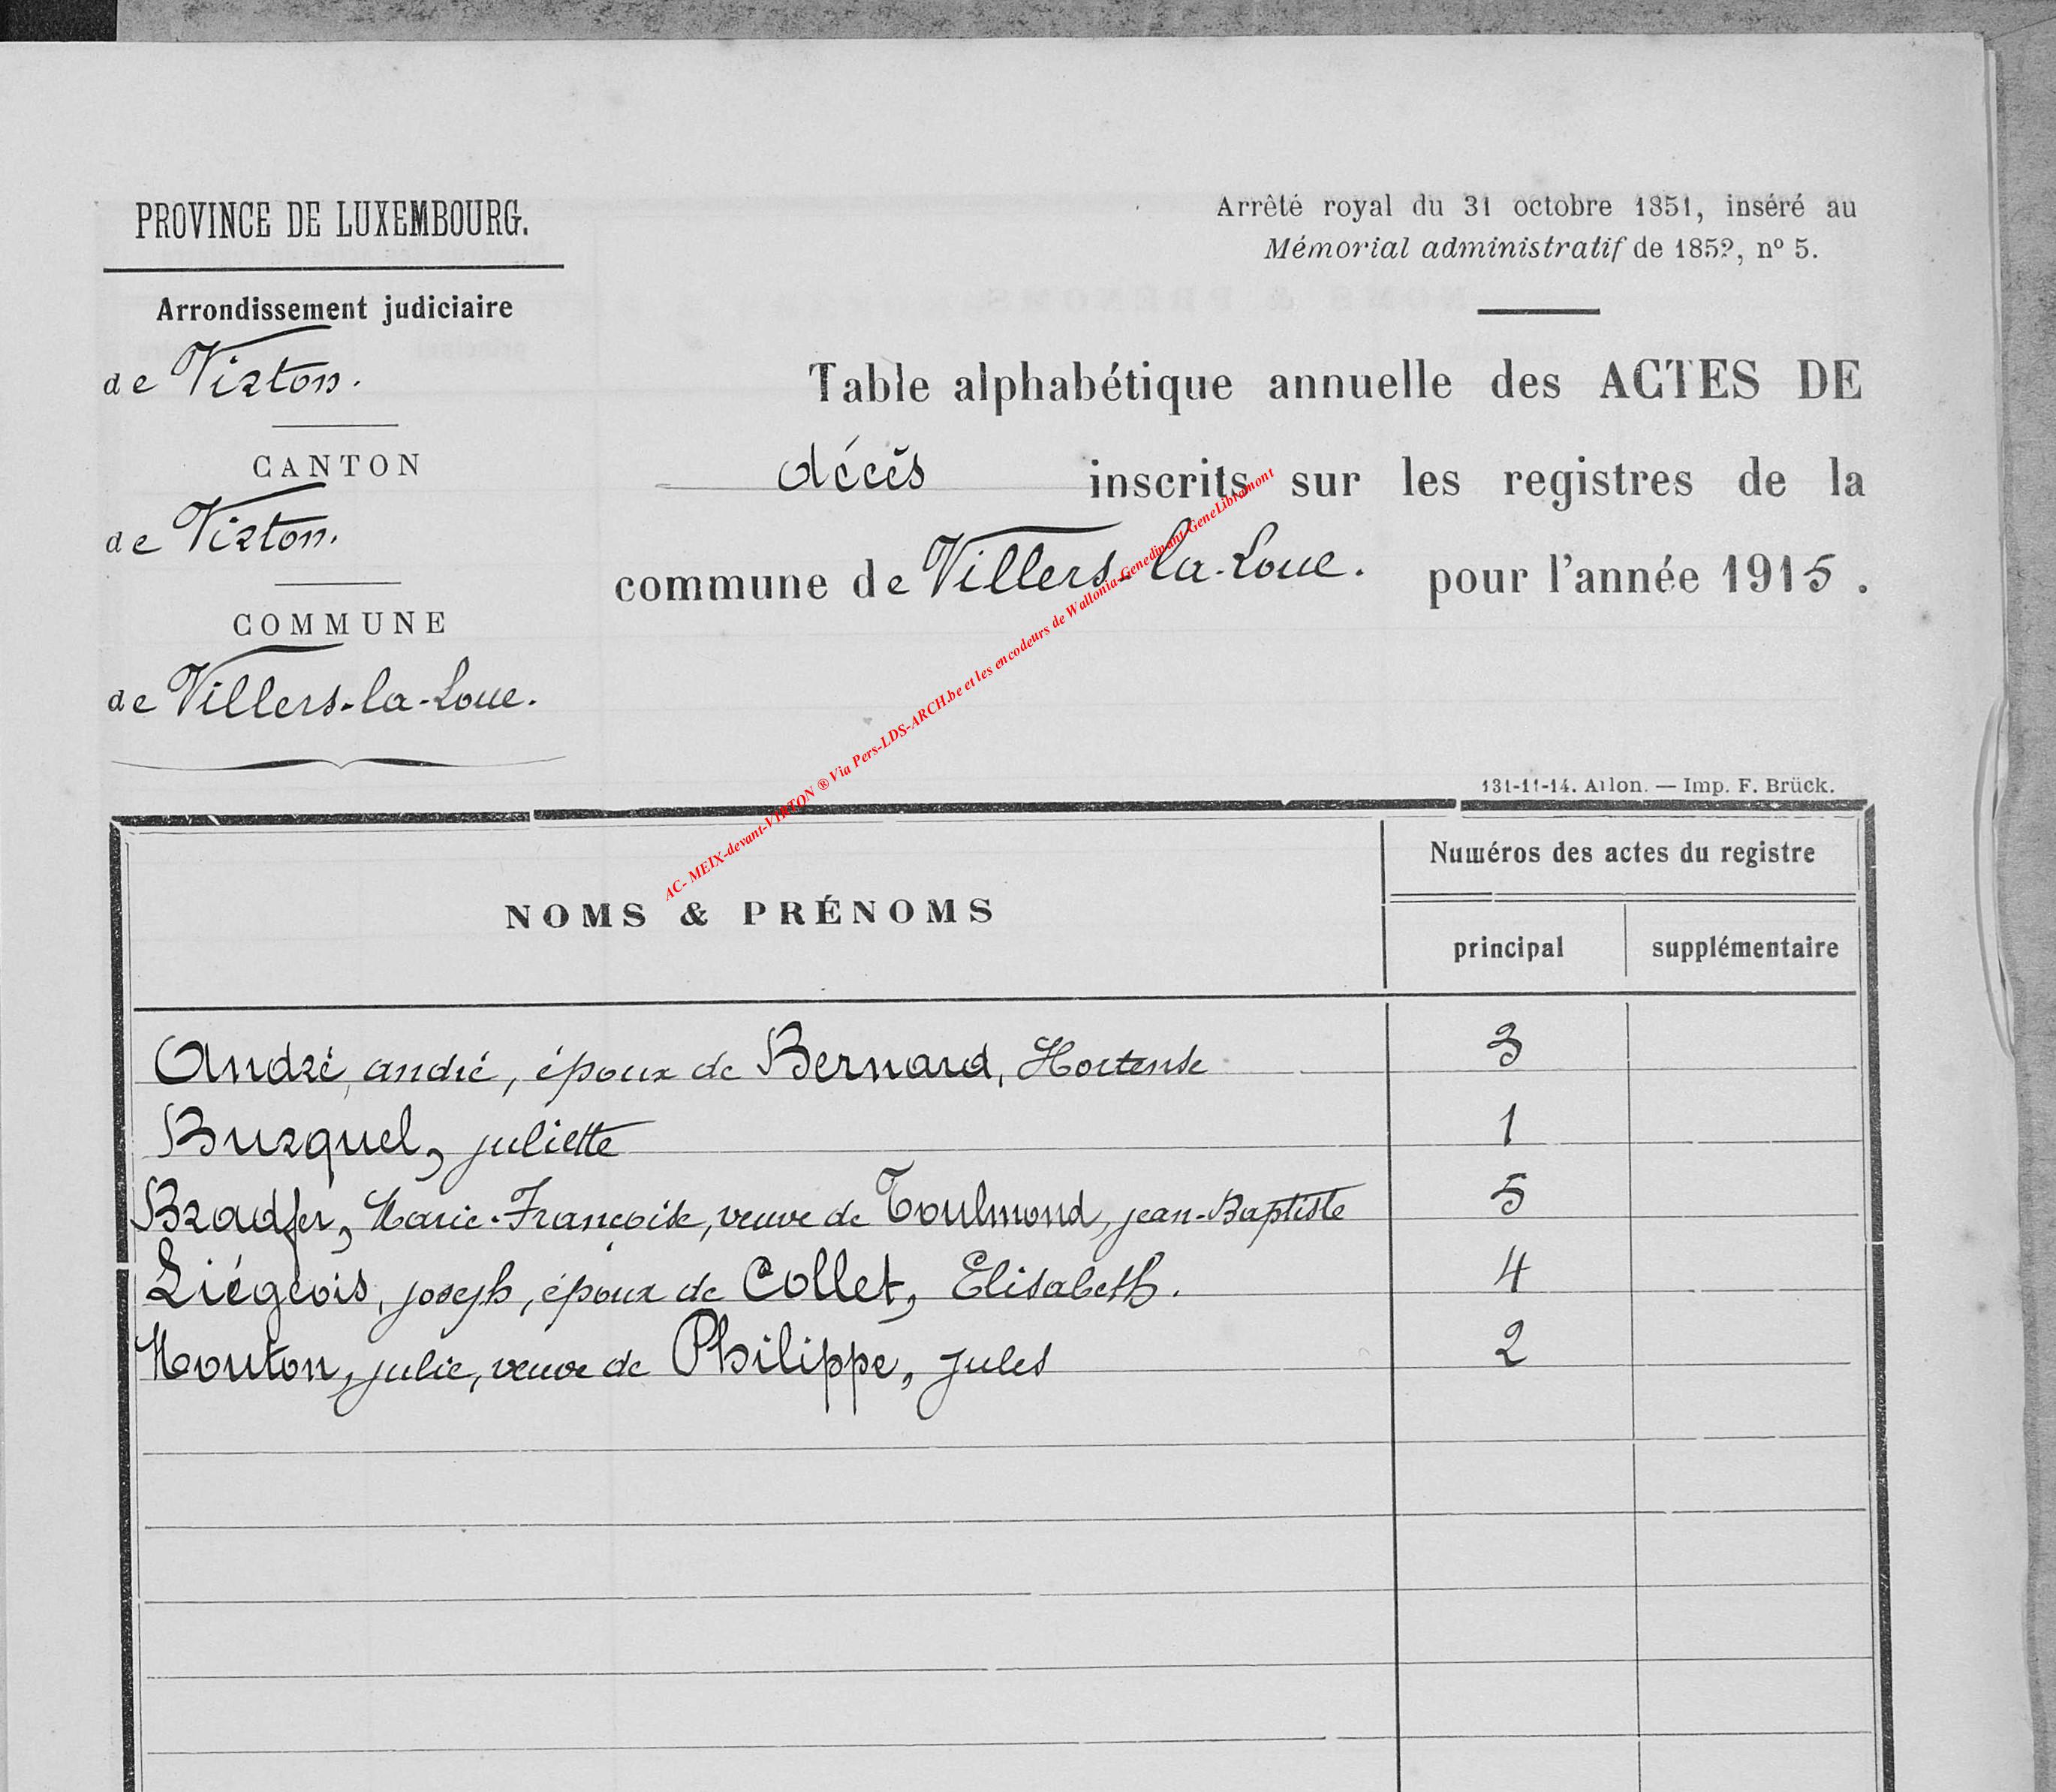 PROVINCE DE LUXEMBOURG.
Arrondissement judiciaire
de Virton.
CANTON
de Virton.
COMMUNE
de Villers-la-Loue.
Arrêté royal du 31 octobre 1851, inséré au
Mémorial administratif de 1852, nº 5.
Table alphabétique annuelle des ACTES DE
décès inscrits sur les registres de la
commune de Villers-la-Loue. pour l'année 1915.
AC- MEIX-devant-VIRTON ® Via Pers-LDS-ARCH.be et les encodeurs de Wallonia-Genedinant-GeneLibramont
131-11-14. Arlon. — Imp. F. Brück.
NOMS & PRÉNOMS
Numéros des actes du registre
principal supplémentaire
André, andré, époux de Bernard, Hortense 3
Burquel, juliette 1
Bradfer, Marie-Françoise, veuve de Toulmond, jean-Baptiste 5
Liégeois, joseph, époux de Collet, Elisabeth. 4
Mouton, julie, veuve de Philippe, jules 2